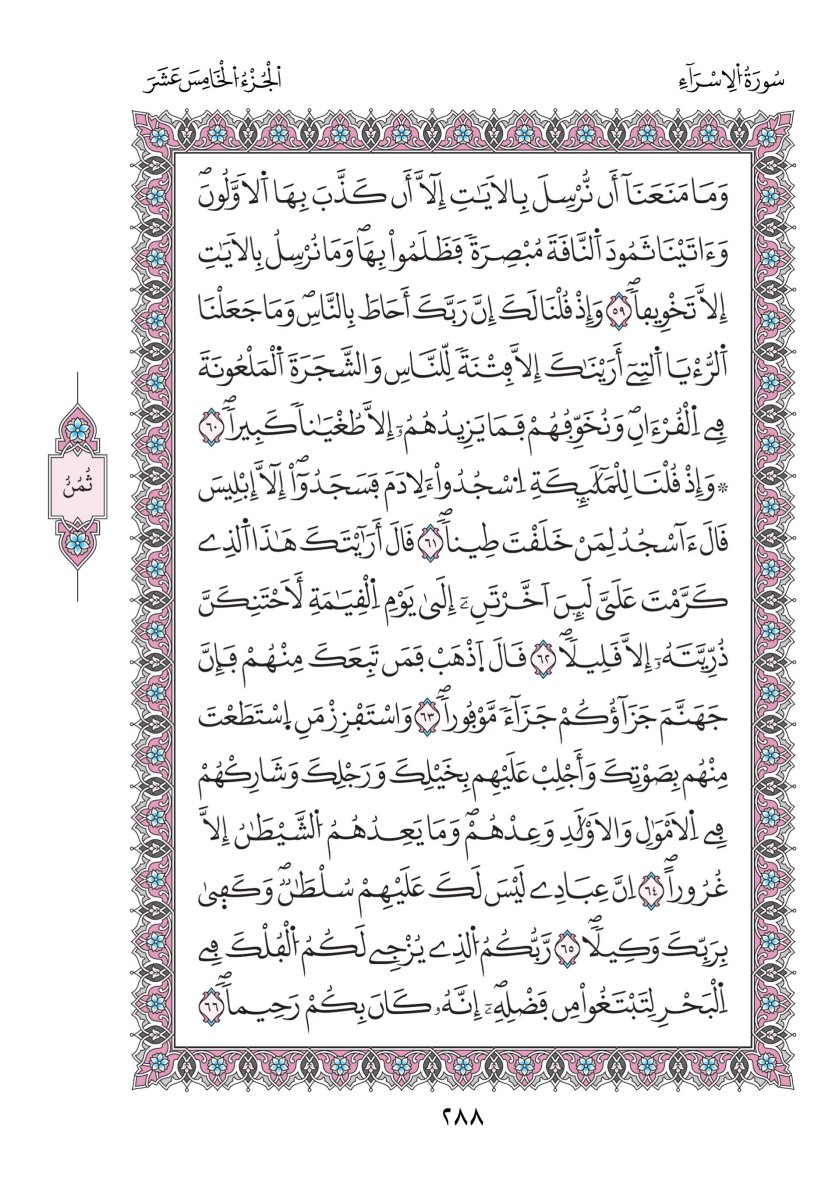 سُورَةُ اُ۬لِاسْرَآءِ
اَ۬لْجُزْءُ اُ۬لْخَامِسَ عَشَرَ
وَمَا مَنَعَنَآ أَن نُّرْسِلَ بِالَايَٰتِ إِلَّآ أَن كَذَّبَ بِهَا اَ۬لَاوَّلُونَۖ
وَءَاتَيْنَا ثَمُودَ اَ۬لنَّاقَةَ مُبْصِرَةٗ فَظَلَمُواْ بِهَاۖ وَمَا نُرْسِلُ بِالَايَٰتِ
إِلَّا تَخْوِيفاٗۖ ٥٩ وَإِذْ قُلْنَا لَكَ إِنَّ رَبَّكَ أَحَاطَ بِالنَّاسِۖ وَمَا جَعَلْنَا
اَ۬لرُّءْيَا اَ۬لتِےٓ أَرَيْنَٰكَ إِلَّا فِتْنَةٗ لِّلنَّاسِ وَالشَّجَرَةَ اَ۬لْمَلْعُونَةَ
فِے اِ۬لْقُرْءَانِۖ وَنُخَوِّفُهُمْ فَمَا يَزِيدُهُمُۥٓ إِلَّا طُغْيَٰناٗ كَبِيراٗۖ ٦٠
۞ وَإِذْ قُلْنَا لِلْمَلَٰٓئِكَةِ اِ۟سْجُدُواْ ءَلِادَمَ فَسَجَدُوٓاْ إِلَّآ إِبْلِيسَ
قَالَ ءَآسْجُدُ لِمَنْ خَلَقْتَ طِيناٗۖ ٦١ قَالَ أَرَٰٓيْتَكَ هَٰذَا اَ۬لذِے
كَرَّمْتَ عَلَيَّ لَئِنَ اَخَّرْتَنِۦٓ إِلَىٰ يَوْمِ اِ۬لْقِيَٰمَةِ لَأَحْتَنِكَنَّ
ذُرِّيَّتَهُۥٓ إِلَّا قَلِيلاٗۖ ٦٢ قَالَ اَ۪ذْهَبْ فَمَن تَبِعَكَ مِنْهُمْ فَإِنَّ
جَهَنَّمَ جَزَآؤُكُمْ جَزَآءٗ مَّوْفُوراٗۖ ٦٣ وَاسْتَفْزِزْ مَنِ اِ۪سْتَطَعْتَ
مِنْهُم بِصَوْتِكَ وَأَجْلِبْ عَلَيْهِم بِخَيْلِكَ وَرَجْلِكَ وَشَارِكْهُمْ
فِے اِ۬لَامْوَٰلِ وَالَاوْلَٰدِ وَعِدْهُمْۖ وَمَا يَعِدُهُمُ اُ۬لشَّيْطَٰنُ إِلَّا
غُرُوراًۖ ٦٤ اِنَّ عِبَادِے لَيْسَ لَكَ عَلَيْهِمْ سُلْطَٰنٞۖ وَكَفَىٰ
بِرَبِّكَ وَكِيلاٗۖ ٦٥ رَّبُّكُمُ اُ۬لذِے يُزْجِے لَكُمُ اُ۬لْفُلْكَ فِے
اِ۬لْبَحْرِ لِتَبْتَغُواْ مِن فَضْلِهِۦٓۖ إِنَّهُۥ كَانَ بِكُمْ رَحِيماٗۖ ٦٦
ثُمُنُ
٢٨٨